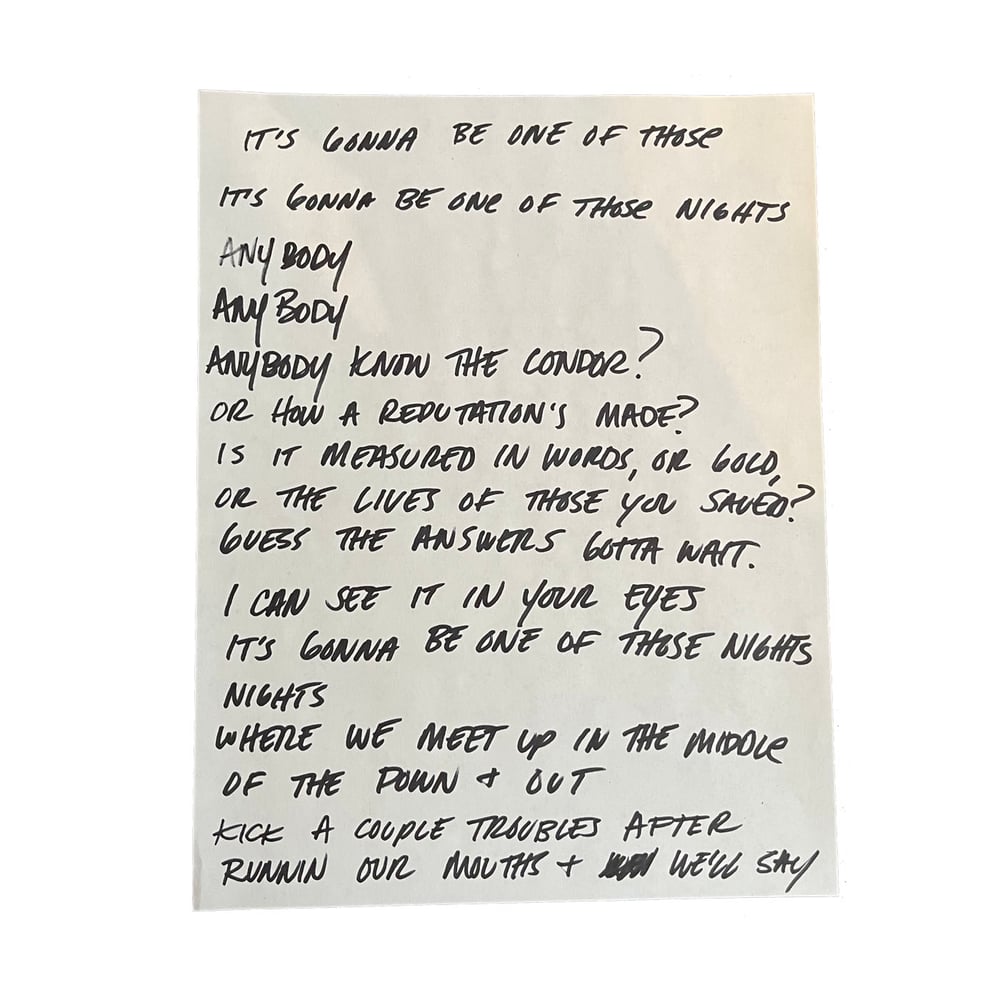 IT'S GONNA BE ONE OF THOSE
IT'S GONNA BE ONE OF THOSE NIGHTS
ANYBODY
ANYBODY
ANYBODY KNOW THE CONDOR?
OR HOW A REPUTATION'S MADE?
IS IT MEASURED IN WORDS, OR GOLD,
OR THE LIVES OF THOSE YOU SAVED?
GUESS THE ANSWERS GOTTA WAIT.
I CAN SEE IT IN YOUR EYES
IT'S GONNA BE ONE OF THOSE NIGHTS
NIGHTS
WHERE WE MEET UP IN THE MIDDLE
OF THE DOWN + OUT
KICK A COUPLE TROUBLES AFTER
RUNNIN OUR MOUTHS + WE'LL SAY